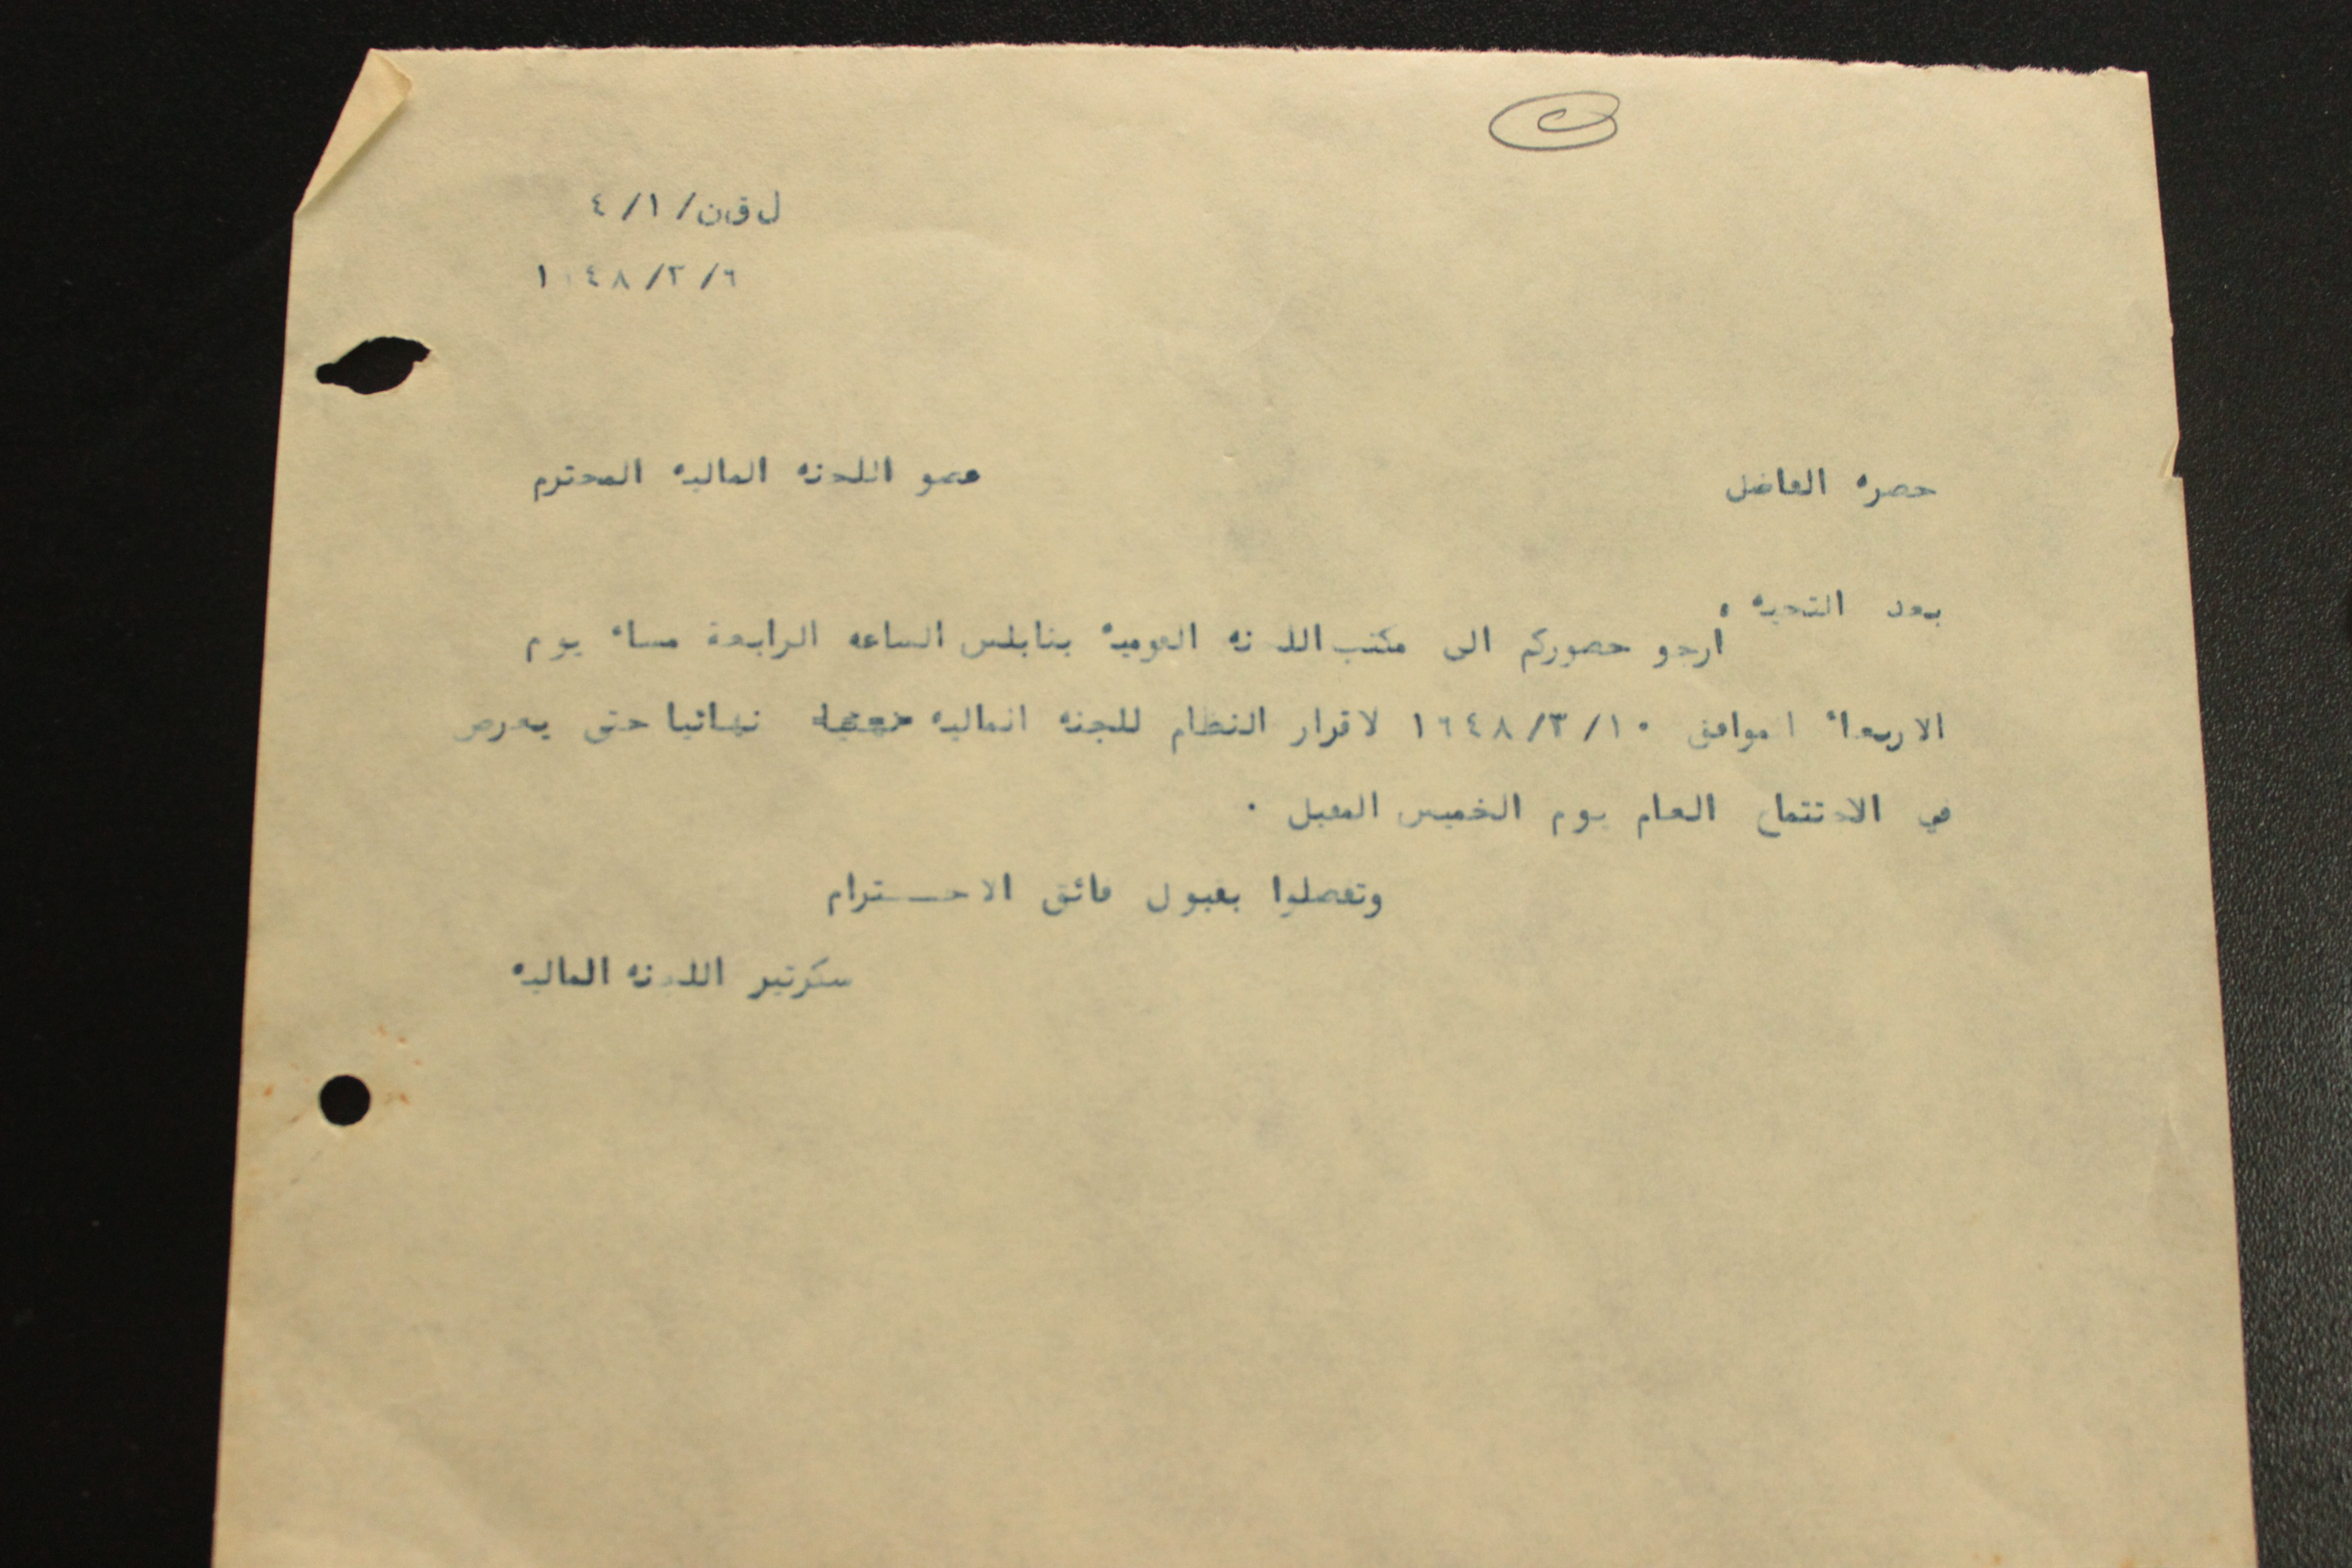 ل.ق.ن/ ١/ ٤
٦/ ٢/ ١٩٤٨
حضره الفاضل عضو اللجنه الماليه المحترم
بعد التحيه ،
ارجو حضوركم الى مكتب اللجنه القوميه بنابلس الساعه الرابعة مساء يوم
الاربعاء الموافق ١٠/ ٣/ ١٩٤٨ لاقرار النظام للجنه الماليه نهائيا حتى يعرض
في الاجتماع العام يوم الخميس المقبل .
وتفضلوا بقبول فائق الاحــترام
سكرتير اللجنه الماليه